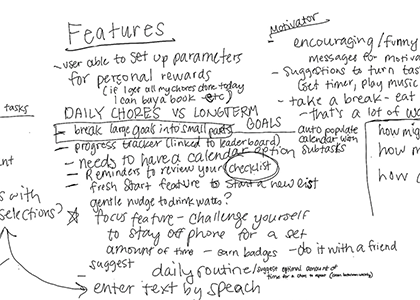 Features
- user able to set up parameters
for personal rewards
(if I get all my chores done today
I can buy a book - etc)
DAILY CHORES VS LONGTERM
GOALS
- break large goals into small parts
auto populate
calendar with
subtasks
- progress tracker (linked to leaderboard)
- needs to have a calendar option
- Reminders to review your checklist
- fresh start feature to start a new list
gentle nudge to drink water?
focus feature - challenge yourself
to stay off phone for a set
amount of time - earn badges - do it with a friend
- suggest
daily routine/suggest optimal amount of
enter text by speach
Motivator
encouraging/funny
messages to motiva
- suggestions to turn tas
(set timer, play music
- take a break - eat
- that's a lot of wo
how mig
how m
how c
tasks
s with
selections?